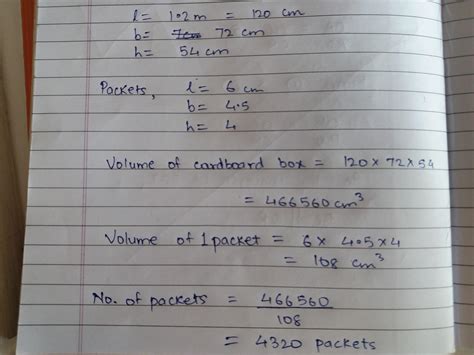 l = 1.2 m = 120 cm
b = 72 cm
h = 54 cm
Packets, l = 6 cm
b = 4.5
h = 4
Volume of cardboard box = 120 × 72 × 54
= 466560 cm³
Volume of 1 packet = 6 × 4.5 × 4
= 108 cm³
No. of packets = 466560
108
= 4320 packets